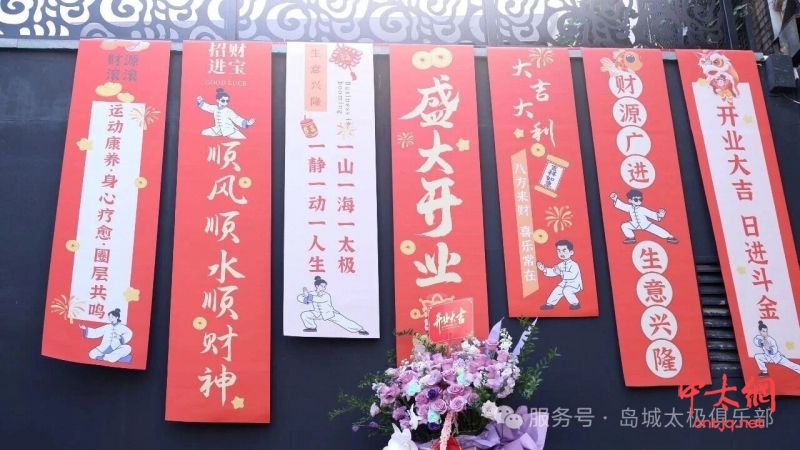 财源
滚滚
运动康养·身心疗愈·圈层共鸣
招财
进宝
GOOD LUCK
顺风顺水顺财神
生意兴隆
Business is
booming
一山一海一太极
一静一动一人生
盛大开业
开业大吉
大吉
大利
八方来财 喜乐常在
财源广进 生意兴隆
开业大吉 日进斗金
中太网
cntjq.net
服务号 · 岛城太极俱乐部